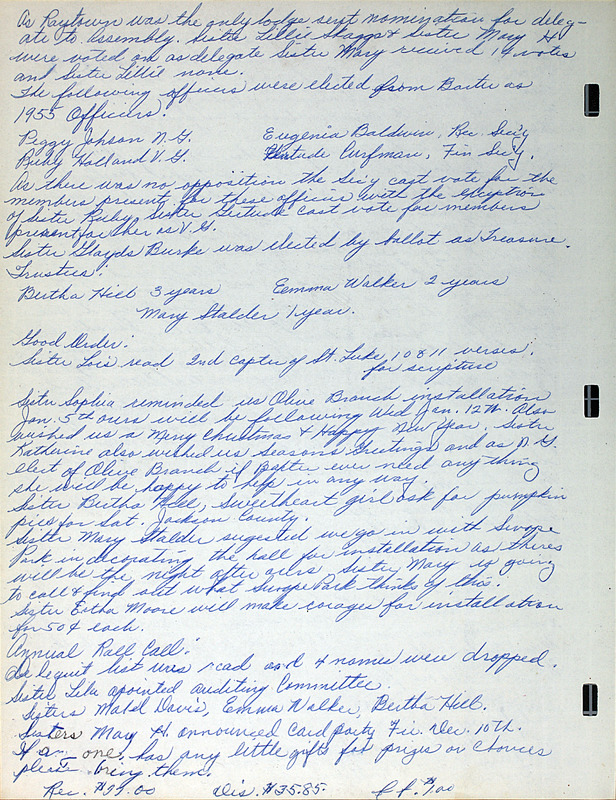 As Raytown was the only lodge sent nomination for deleg-
ate to Assembly. Sister Lillie Skaggs & Sister Mary H
were voted on as delegate Sister Mary received 14 votes
and Sister Lillie none.
The following officers were elected from Baxter as
1955 Officers:
Peggy Johson N.G. Eugenia Baldwin, Rec. Sec'y
Ruby Holland V.G. Gertrude Curfman, Fin Sec'y.
As there was no opposition the Sec'y cast vote for the
members present for these officers with the exception
of Sister Ruby, Sister Gertrude cast vote for members
present for her as V.G.
Sister Glayds Burke was elected by ballot as Treasure.
Trustees:
Bertha Hill 3 years Eemma Walker 2 years
Mary Stalder 1 year.
Good Order:
Sister Lois read 2nd capter of St. Luke, 10 & 11 verses.
for scripture
Sister Sophia reminded us Olive Branch installation
Jan. 5th ours will be following Wed Jan. 12th. Also
wished us a Merry Christmas & Happy New Year. Sister
Katherine also wished us Seasons Greetings and as N.G.
elect of Olive Branch if Baxter ever need any thing
she will be happy to help in any way.
Sister Bertha Hill, Sweetheart girl ask for pumpkin
pies for Sat. Jackson County.
Sister Mary Stalder sugested we go in with Swope
Park in decorating the hall for installation as theres
will be the night after ours Sister Mary is going
to call & find out what Swope Park thinks of this.
Sister Ertha Moore will make corages for installation
for 50¢ each.
Annual Roll Call:
Delequit list was read and 4 names were dropped.
Sister Lela apointed auditing Committee
Sisters Mabel Davis, Emma Walker, Bertha Hill.
Sisters Mary H. announced Card party Fri. Dec. 10th.
If any one has any little gifts for prizes or chances
please bring them.
Rec. $ Dis. $35.85.